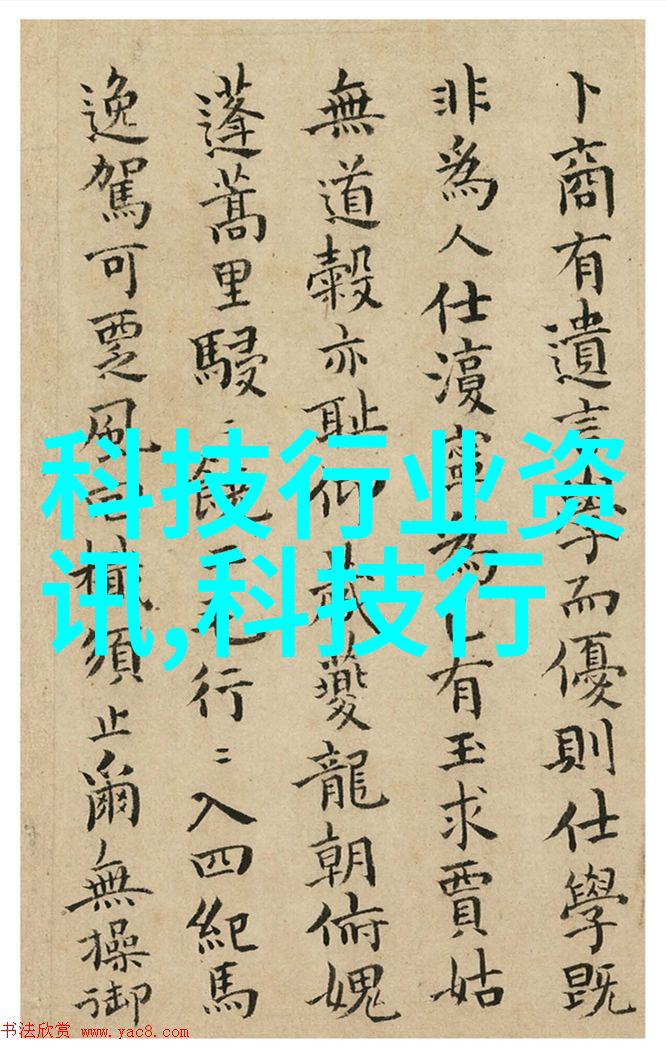 卜商有遺言學而優則仕學既
非為人仕為己有玉求賈姑
無道穀亦耻仰夔龍朝俯媿
蓬蒿里駸行入四紀馬
逸駕可覂風須止爾無操御
科技行业资
讯,科技行
书法欣赏 www.yac8.com